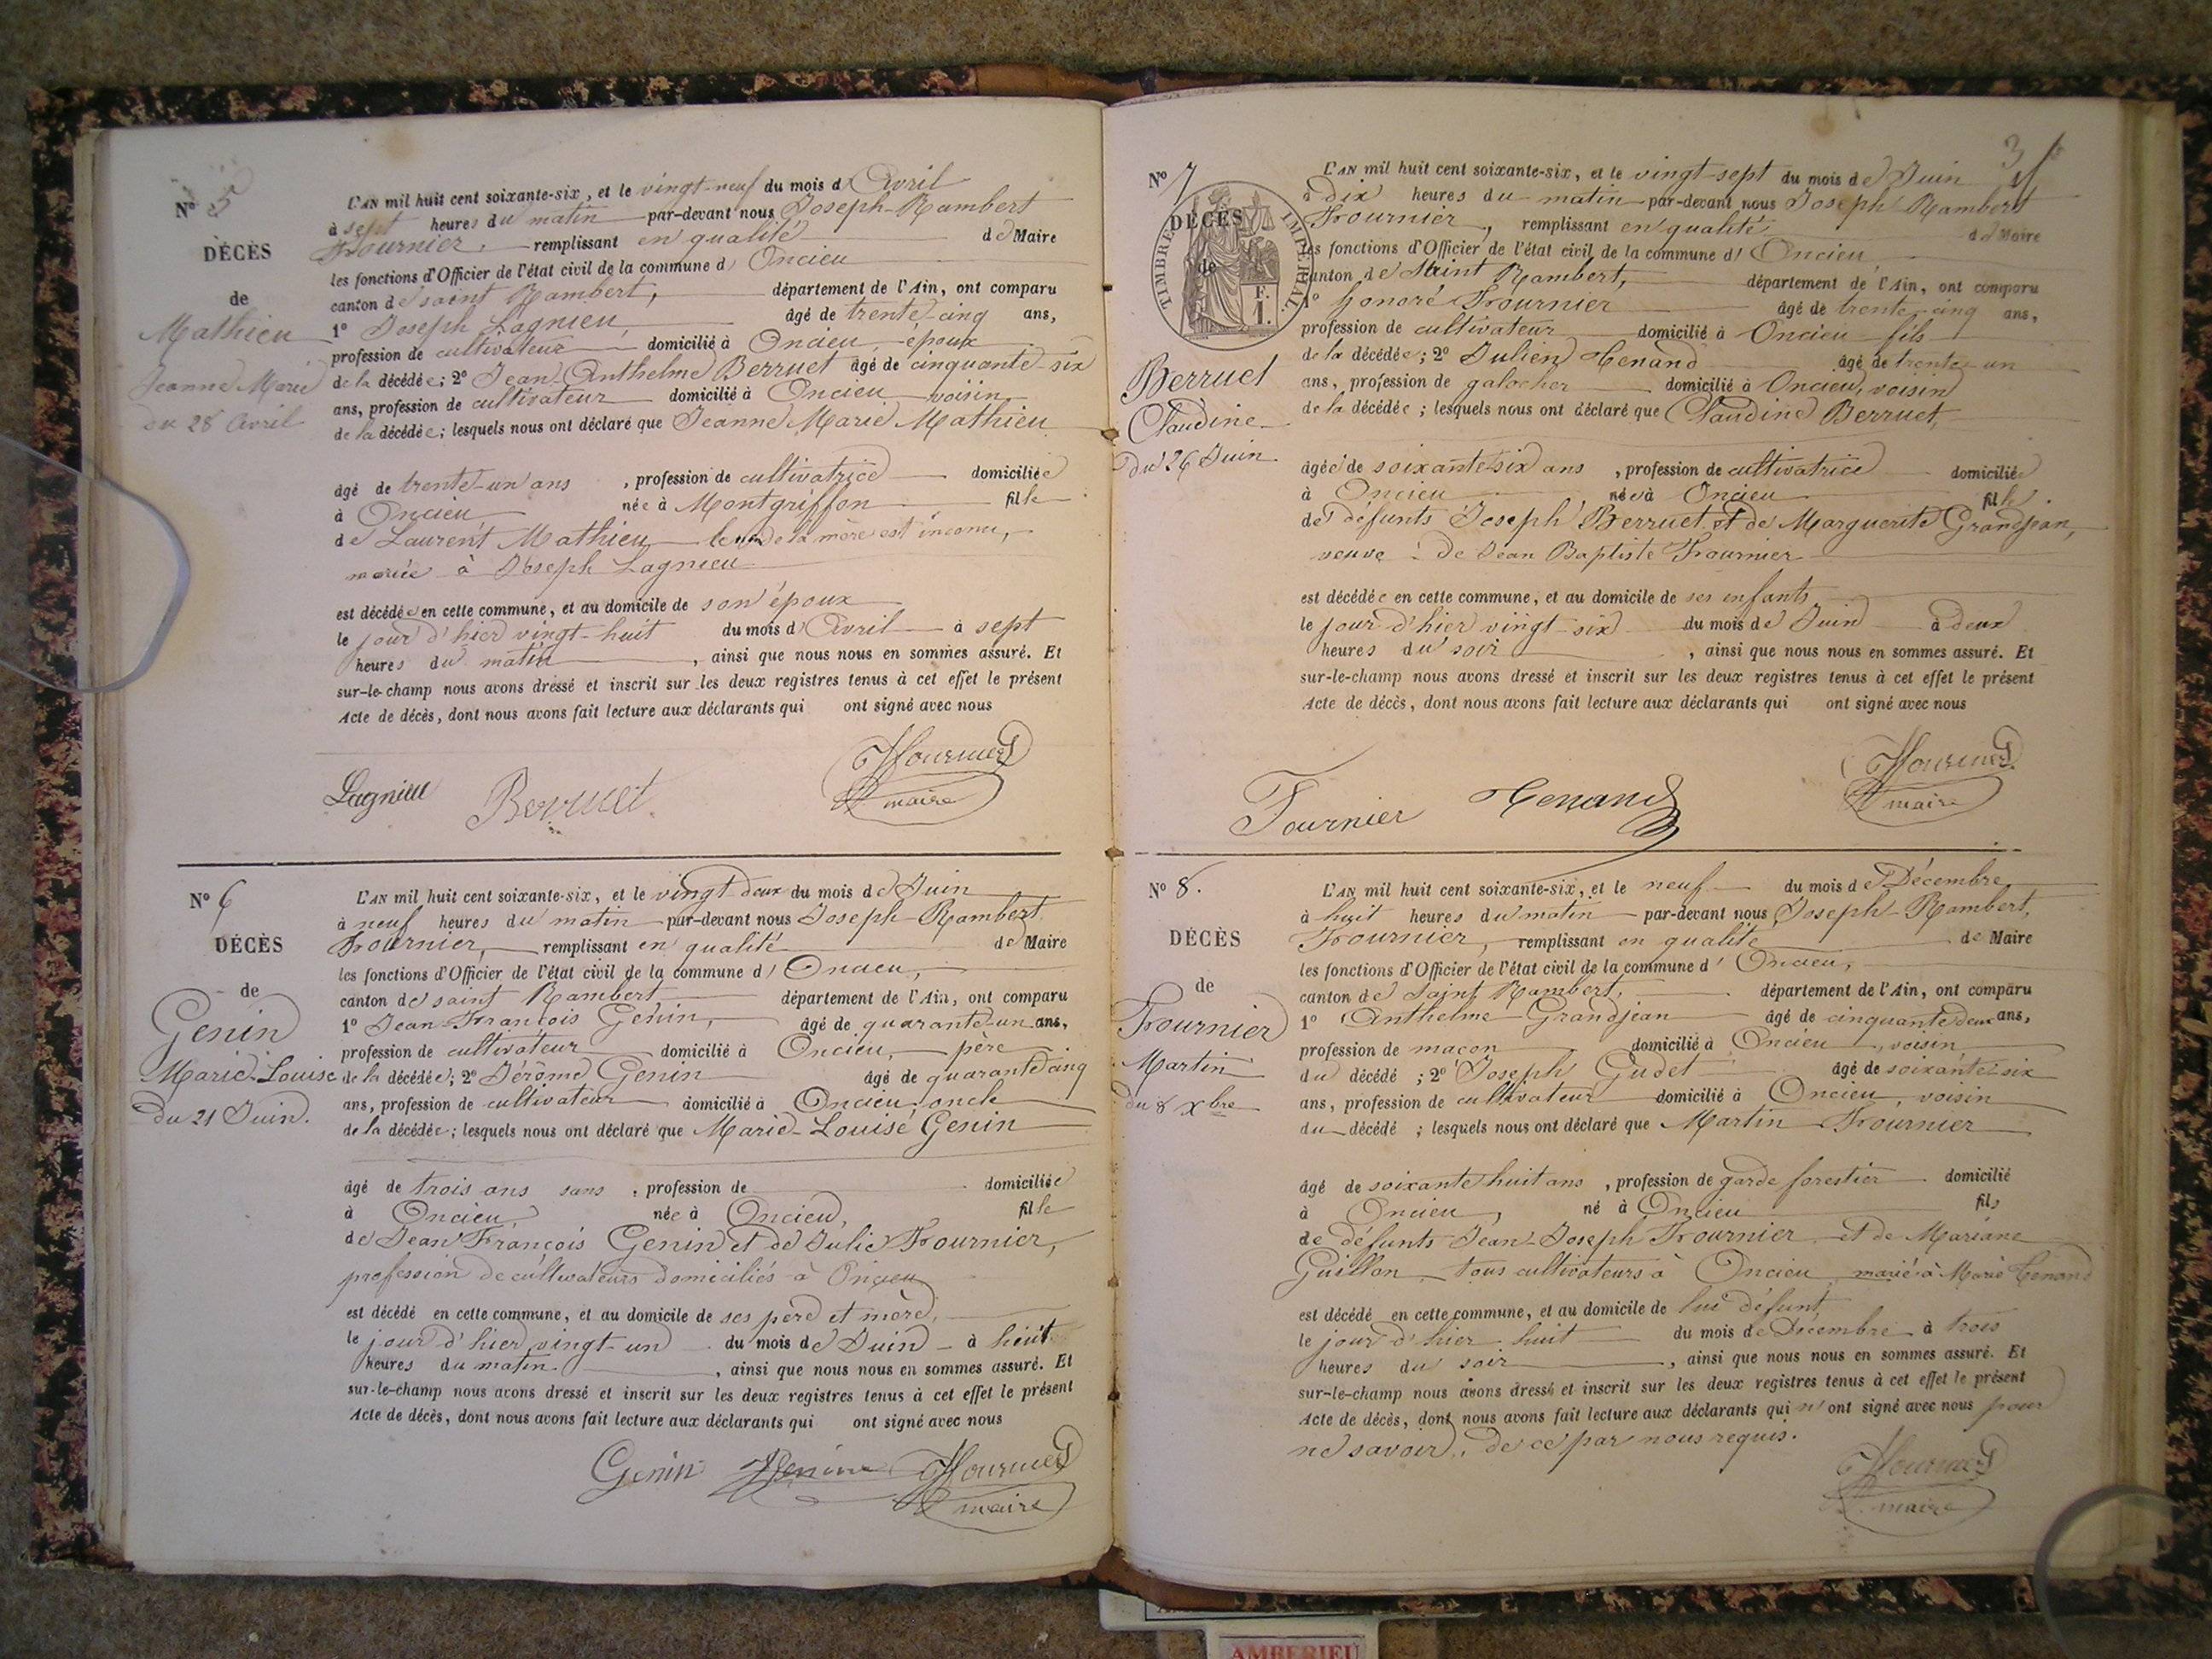 N° 5
DÉCÈS
de
Mathieu
Jeanne Marie
du 28 Avril
L'AN mil huit cent soixante-six, et le vingt-neuf du mois d'Avril
à sept heures du matin par-devant nous Joseph-Rambert
Fournier, remplissant en qualité de Maire
les fonctions d'Officier de l'état civil de la commune d'Oncieu
canton de saint Rambert, département de l'Ain, ont comparu
1° Joseph Lagnieu, âgé de trente-cinq ans,
profession de cultivateur domicilié à Oncieu, époux
de la décédée; 2° Jean-Anthelme Berruet âgé de cinquante-six
ans, profession de cultivateur domicilié à Oncieu voisin
de la décédée; lesquels nous ont déclaré que Jeanne Marie Mathieu
âgé de trente-un ans, profession de cultivatrice domiciliée
à Oncieu née à Montgriffon fille
de Laurent Mathieu le de la mère est inconu,
mariée à Joseph Lagnieu
est décédée en cette commune, et au domicile de son époux
le jour d'hier vingt-huit du mois d'Avril à sept
heures du matin, ainsi que nous nous en sommes assuré. Et
sur-le-champ nous avons dressé et inscrit sur les deux registres tenus à cet effet le présent
Acte de décès, dont nous avons fait lecture aux déclarants qui ont signé avec nous
Lagnieu Berruet Fournier
maire
N° 6
DÉCÈS
de
Genin
Marie-Louise
du 21 Juin.
L'AN mil huit cent soixante-six, et le vingt-deux du mois de Juin
à neuf heures du matin par-devant nous Joseph-Rambert
Fournier, remplissant en qualité de Maire
les fonctions d'Officier de l'état civil de la commune d'Oncieu,
canton de saint Rambert département de l'Ain, ont comparu
1° Jean-François Genin, âgé de quarante-un ans,
profession de cultivateur domicilié à Oncieu, père
de la décédée; 2° Jérôme Genin âgé de quarante cinq
ans, profession de cultivateur domicilié à Oncieu, oncle
de la décédée; lesquels nous ont déclaré que Marie-Louise Genin
âgé de trois ans sans, profession de domiciliée
à Oncieu, née à Oncieu, fille
de Jean François Genin et de Julie Fournier,
profession de cultivateurs domiciliés à Oncieu
est décédé en cette commune, et au domicile de ses père et mère,
le jour d'hier vingt-un du mois de Juin à huit
heures du matin, ainsi que nous nous en sommes assuré. Et
sur-le-champ nous avons dressé et inscrit sur les deux registres tenus à cet effet le présent
Acte de décès, dont nous avons fait lecture aux déclarants qui ont signé avec nous
Genin Genin Fournier
maire
3
N° 7
DÉCÈS
de
TIMBRE IMPÉRIAL
1 F.
Berruet
Claudine
du 26 Juin
L'AN mil huit cent soixante-six, et le vingt-sept du mois de Juin
à dix heures du matin par-devant nous Joseph Rambert
Fournier, remplissant en qualité de Maire
les fonctions d'Officier de l'état civil de la commune d'Oncieu
canton de Saint Rambert, département de l'Ain, ont comparu
1° honoré Fournier âgé de trente-cinq ans,
profession de cultivateur domicilié à Oncieu fils
de la décédée; 2° Julien Tenand âgé de trente-un
ans, profession de galocher domicilié à Oncieu, voisin
de la décédée; lesquels nous ont déclaré que Claudine Berruet,
âgée de soixante-six ans, profession de cultivatrice domiciliée
à Oncieu née à Oncieu fille
de défunts Joseph Berruet et de Marguerite Grandjean,
veuve de Jean Baptiste Fournier
est décédée en cette commune, et au domicile de ses enfants
le jour d'hier vingt-six du mois de Juin à deux
heures du soir, ainsi que nous nous en sommes assuré. Et
sur-le-champ nous avons dressé et inscrit sur les deux registres tenus à cet effet le présent
Acte de décès, dont nous avons fait lecture aux déclarants qui ont signé avec nous
Fournier Tenand Fournier
maire
N° 8.
DÉCÈS
de
Fournier
Martin
du 8 xbre
L'AN mil huit cent soixante-six, et le neuf du mois de Décembre
à huit heures du matin par-devant nous Joseph-Rambert,
Fournier, remplissant en qualité de Maire
les fonctions d'Officier de l'état civil de la commune d'Oncieu,
canton de Saint Rambert, département de l'Ain, ont comparu
1° Anthelme Grandjean âgé de cinquante deux ans,
profession de maçon domicilié à Oncieu, voisin
du décédé; 2° Joseph Gudet âgé de soixante-six
ans, profession de cultivateur domicilié à Oncieu, voisin
du décédé; lesquels nous ont déclaré que Martin Fournier
âgé de soixante huit ans, profession de garde forestier domicilié
à Oncieu, né à Oncieu fils
de défunts Jean-Joseph Fournier et de Mariane
Guillon tous cultivateurs à Oncieu marié à Marie Tenand
est décédé en cette commune, et au domicile de lui défunt
le jour d'hier huit du mois de Décembre à trois
heures du soir, ainsi que nous nous en sommes assuré. Et
sur-le-champ nous avons dressé et inscrit sur les deux registres tenus à cet effet le présent
Acte de décès, dont nous avons fait lecture aux déclarants qui n'ont signé avec nous pour
ne savoir, de ce par nous requis.
Fournier
maire
AMBERIEU